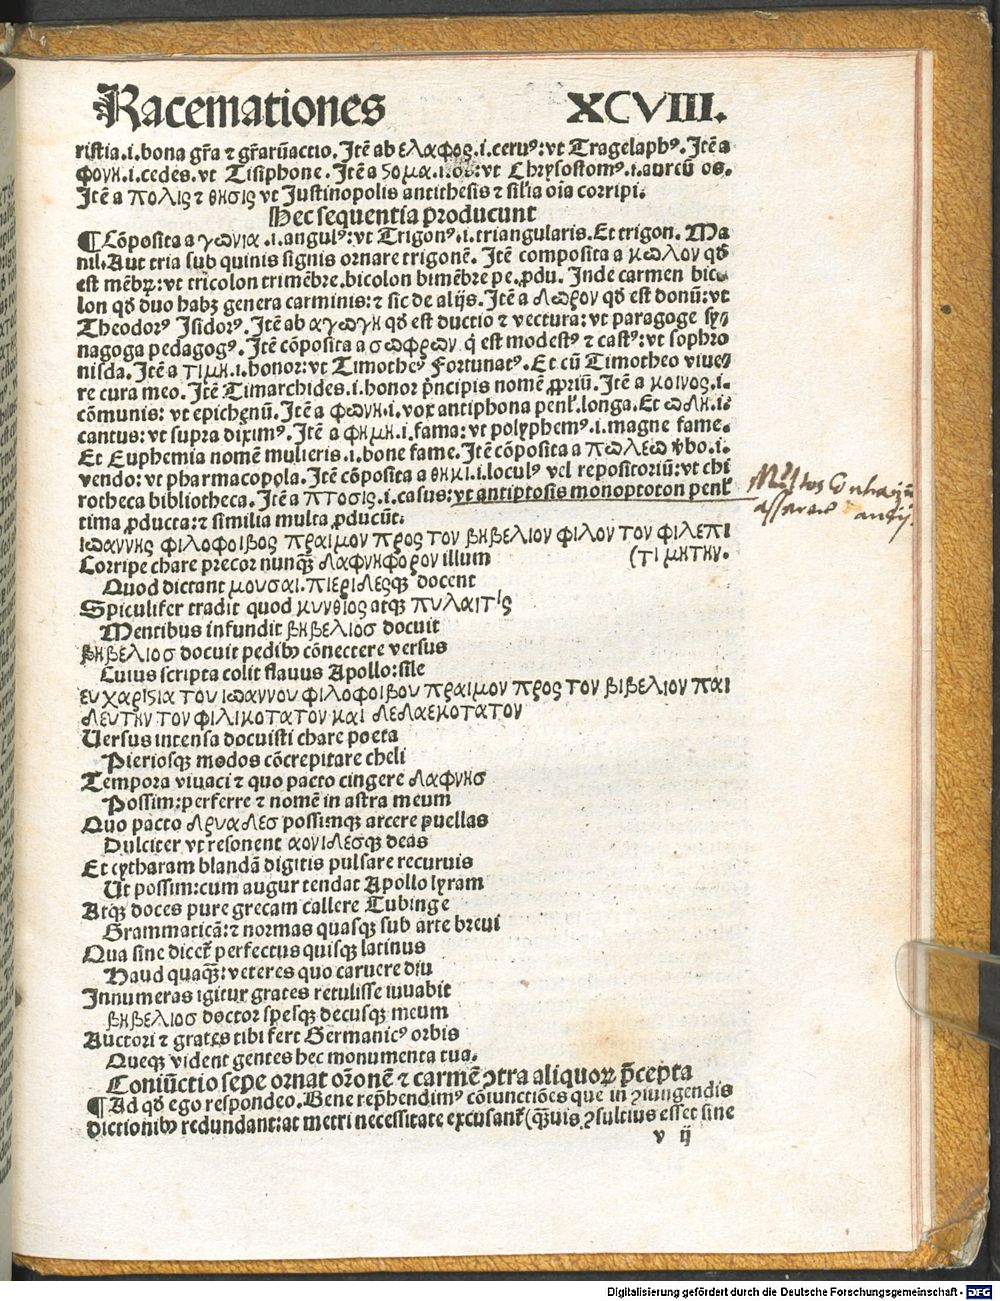 Racemationes XCVIII.
ristia.i.bona gr̃a ⁊ gr̃arũactio. Itẽ ab ελαφος.i.ceruꝰ:vt Tragelaphꝰ. Itẽ a
φονη.i.cedes.vt Tisiphone. Itẽ a ϛομα.i.os:vt Chrysostomꝰ.i.aureũ os.
Itẽ a πολις ⁊ θησις vt Justinopolis antithesis ⁊ sil'ia oĩa corripi.
Hec sequentia producunt
¶ Cõposita a γωνια .i.angulꝰ:vt Trigonꝰ.i.triangularis. Et trigon. Ma
nil. Aut tria sub quinis signis ornare trigonẽ. Itẽ composita a κωλον qđ
est mẽbꝝ:vt tricolon trimẽbre.bicolon bimẽbre pe.ꝓdu. Inde carmen bico
lon qđ duo habꝫ genera carminis:⁊ sic de alijs. Itẽ a δωρον qđ est donũ:vt
Theodorꝰ Isidorꝰ. Itẽ ab αγωγη qđ est ductio ⁊ vectura:vt paragoge sy⸗
nagoga pedagogꝰ. Itẽ cõposita a σωφρων q̇ est modestꝰ ⁊ castꝰ:vt sophro
nisda. Itẽ a τιμη.i.honor:vt Timotheꝰ Fortunatꝰ. Et cũ Timotheo viue⸗
re cura meo. Itẽ Timarchides.i.honor p̃ncipis nomẽ ꝓpriũ. Itẽ a κοινος.i.
cõmunis: vt epichenũ. Itẽ a φωνη.i.vox antiphona penl̃.longa. Et ωδη.i.
cantus:vt supra diximꝰ. Itẽ a φημη.i.fama:vt polyphemꝰ.i.magne fame.
Et Euphemia nomẽ mulieris.i.bone fame. Itẽ cõposita a πωλεω v̾bo.i.
vendo:vt pharmacopola. Itẽ cõposita a θηκι.i.loculꝰ vel repositoriũ:vt chi
rotheca bibliotheca. Itẽ a πτοσις.i.casus:vt antiptosis monoptoton penl̃
tima ꝓducta:⁊ similia multa ꝓducũt.
ιωαννης φιλοφοιβος πραιμον προς τον βηβελιον φιλον τον φιλεπι
Corripe chare precor nunqꝫ δαφνηφορον illum (τι μητην.
Quod dictant μουσαι.πιεριδεςqꝫ docent
Spiculifer tradit quod κυνθιος atqꝫ πυλαιτις
Mentibus infundit βηβελιοσ docuit
βηβελιοσ docuit pedibꝰ cõnectere versus
Cuius scripta colit flauus Apollo:sile
ευχαριϛια του ιωαννου φιλοφοιβου πραιμον προς τον βιβελιον παι
δευτην τον φιλικοτατον και δεδαεκοτατον
Versus intensa docuisti chare poeta
Pieriosqꝫ modos cõcrepitare cheli
Tempora viuaci ⁊ quo pacto cingere δαφνησ
Possim:perferre ⁊ nomẽ in astra meum
Quo pacto δρυαδεσ possimqꝫ arcere puellas
Dulciter vt resonent αονιδεσqꝫ deas
Et cytharam blandã digitis pulsare recuruis
Ut possim:cum augur tendat Apollo lyram
Atqꝫ doces pure grecam callere Tubinge
Grammaticã:⁊ normas quasqꝫ sub arte breui
Qua sine dicet̃ perfectus quisqꝫ latinus
Haud quaqꝫ̃:veteres quo caruere diu
Innumeras igitur grates retulisse iuuabit
βηβελιοσ doctor spesqꝫ decusqꝫ meum
Auctori ⁊ grates tibi fert Germanicꝰ orbis
Queqꝫ vident gentes hec monumenta tua.
Coniũctio sepe ornat or̃onẽ ⁊ carmẽ ꝯtra aliquoꝝ p̃cepta
¶ Ad qđ ego respondeo. Bene rep̃hendimꝰ cõiunctiões que in ꝯiungendis
dictionibꝰ redundant:at metri necessitate excusant̃ (qꝫ̃uis ꝯsultius esset sine
v ij